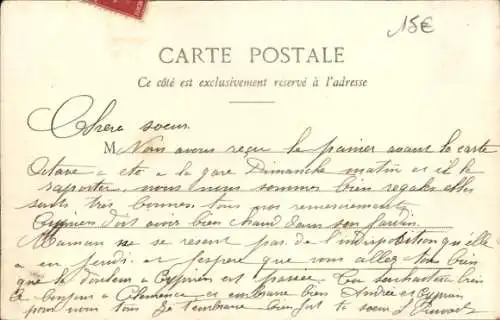 15€
CARTE POSTALE
Ce côté est exclusivement réservé à l'adresse
Chere soeur
M Nous avons reçu le panier avant la carte
Octave a ete a la gare Dimanche matin et il l'a
rapporter nous nous sommes bien regaler elles
sont très bonnes tous nos remerciements
Cyprien doit avoir bien chaud dans son jardin
Maman ne se resent pas de l'indisposition qu'elle
a eu jeudi et j'espere que vous allez tres bien
que la douleur a Cyprien est passee. Tu souhaiteras bien
le bonjour a Clemence et embrasse bien Andrée et Cyprien
pour nous tous Je t'embrasse bien fort ta soeur J